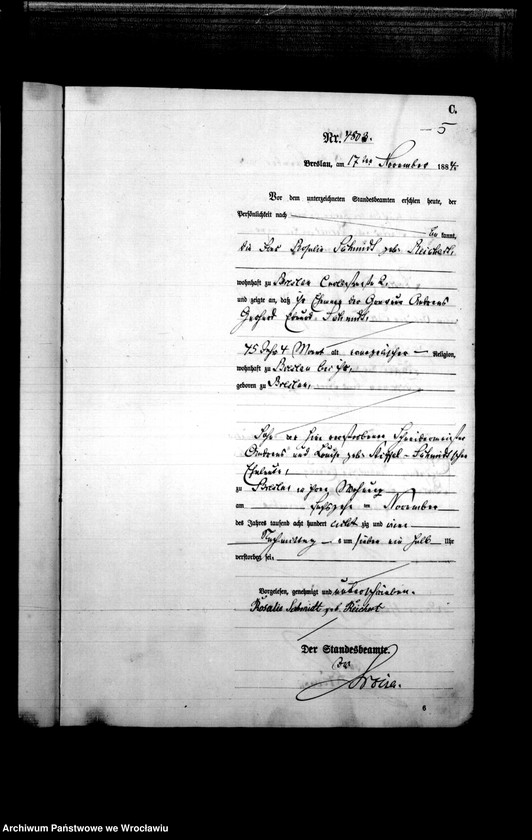 C.
5
Nr. 4803.
Breslau, am 17 ten November 1884
Vor dem unterzeichneten Standesbeamten erschien heute, der
Persönlichkeit nach
be kannt,
die Frau Rosalie Schmidt geb. Reichert,
wohnhaft zu Breslau
und zeigte an, daß ihr Ehemann der Graveur Andreas
Gerhard Eduard Schmidt,
75 Jahr 4 Monat alt evangelischer Religion,
wohnhaft zu Breslau bei ihr,
geboren zu Breslau,
Sohn der hier verstorbenen Schneidermeister
Andreas und Louise geb. Schmidt'schen
Eheleute,
zu Breslau in ihrer Wohnung
am sechszehn ten November
des Jahres tausend acht hundert achtzig und vier
Nachmittag um sieben ein halb Uhr
verstorben sei.
Vorgelesen, genehmigt und unterschrieben.
Rosalie Schmidt geb. Reichert
Der Standesbeamte.
6
Archiwum Państwowe we Wrocławiu